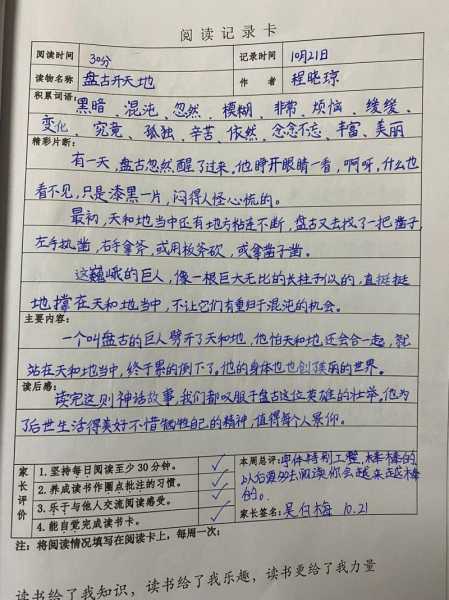 阅读记录卡
阅读时间 30分 记录时间 10月21日
读物名称 盘古开天地 作者 程晓琼
积累词语：黑暗、混沌、忽然、模糊、非常、烦恼、缓缓、
变化、究竟、孤独、辛苦、依然、念念不忘、丰富、美丽
精彩片断：
有一天，盘古忽然醒了过来。他睁开眼睛一看，啊呀，什么也
看不见，只是漆黑一片，闷得人怪心慌的。
最初，天和地当中还有地方粘连不断，盘古又去找了一把凿子，
左手执凿，右手拿斧，或用板斧砍，或拿凿子凿。
这巍峨的巨人，像一根巨大无比的长柱子似的，直挺挺
地撑在天和地当中，不让它们有重归于混沌的机会。
主要内容：
一个叫盘古的巨人劈开了天和地，他怕天和地还会合一起，就
站在天和地当中，终于累的倒下了，他的身体也也创美丽的世界。
读后感：
读完这则神话故事，我们都叹服于盘古这位英雄的壮举。他为
了后世生活得美好不惜牺牲自己的精神，值得每个人景仰。
家长评价
1.坚持每日阅读至少30分钟。 ✓
2.养成读书作圈点批注的习惯。 ✓
3.乐于与他人交流阅读感受。 ✓
4.能自觉完成读书卡。 ✓
本周总评：字体特别工整，棒棒的
以后要多出阅读你会越来越棒
的。
家长签名： 10.21
注：将阅读情况填写在阅读卡上，每周一次；
读书给了我知识，读书给了我乐趣，读书更给了我力量